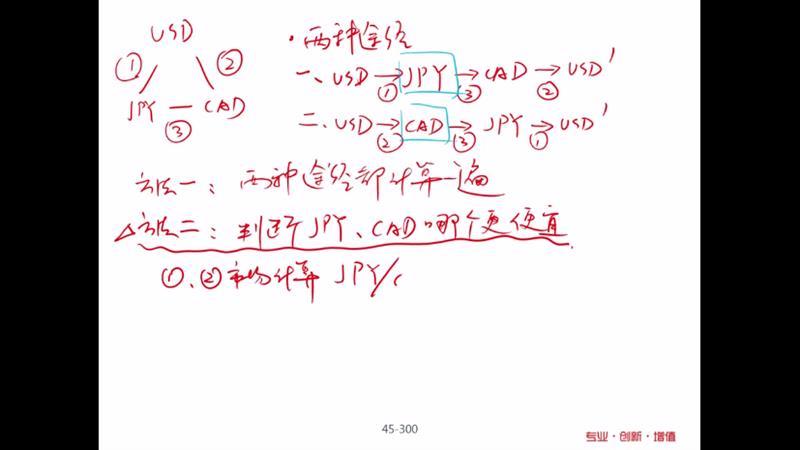 USD
① ②
JPY — CAD
③
·两种途经
一、USD → JPY → CAD → USD'
① ③ ②
二、USD → CAD → JPY → USD'
② ③ ①
方法一：两种途经都计算一遍
△方法二：判断JPY、CAD哪个更便宜
①、②市场计算 JPY/
45-300
专业·创新·增值